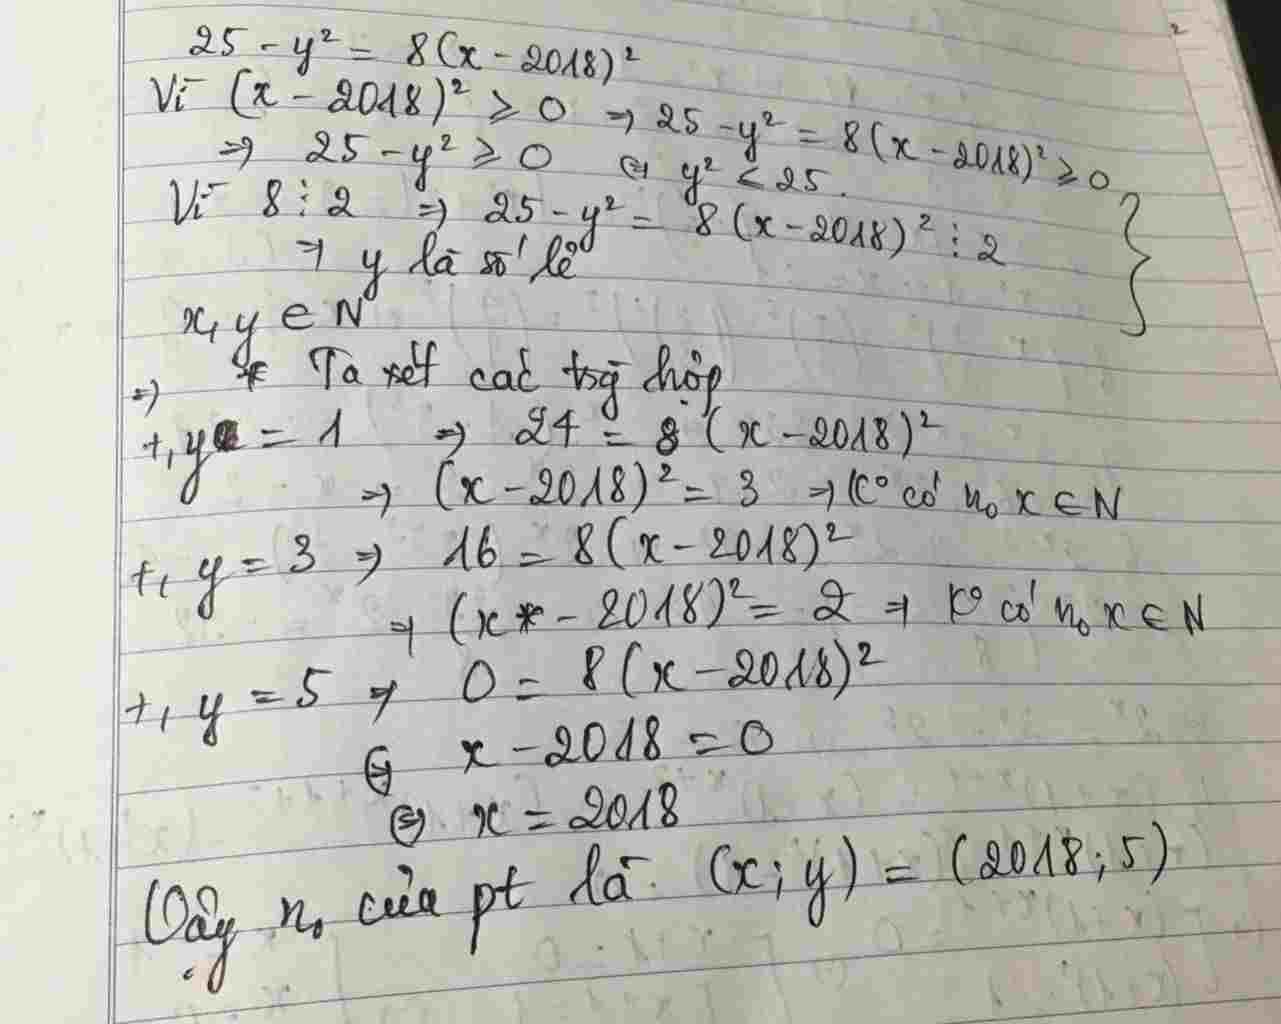 25 - y² = 8(x - 2018)²
Vì (x - 2018)² ≥ 0 ⇒ 25 - y² = 8(x - 2018)² ≥ 0
⇒ 25 - y² ≥ 0 ⇔ y² ≤ 25.
Vì 8 ⋮ 2 ⇒ 25 - y² = 8(x - 2018)² ⋮ 2
⇒ y là số lẻ
x, y ∈ N
⇒ * Ta xét các trg hợp
+, y = 1 ⇒ 24 = 8(x - 2018)²
⇒ (x - 2018)² = 3 ⇒ K° có n₀ x ∈ N
+, y = 3 ⇒ 16 = 8(x - 2018)²
⇒ (x - 2018)² = 2 ⇒ K° có n₀ x ∈ N
+, y = 5 ⇒ 0 = 8(x - 2018)²
⇔ x - 2018 = 0
⇔ x = 2018
Vậy n₀ của pt là (x; y) = (2018; 5)